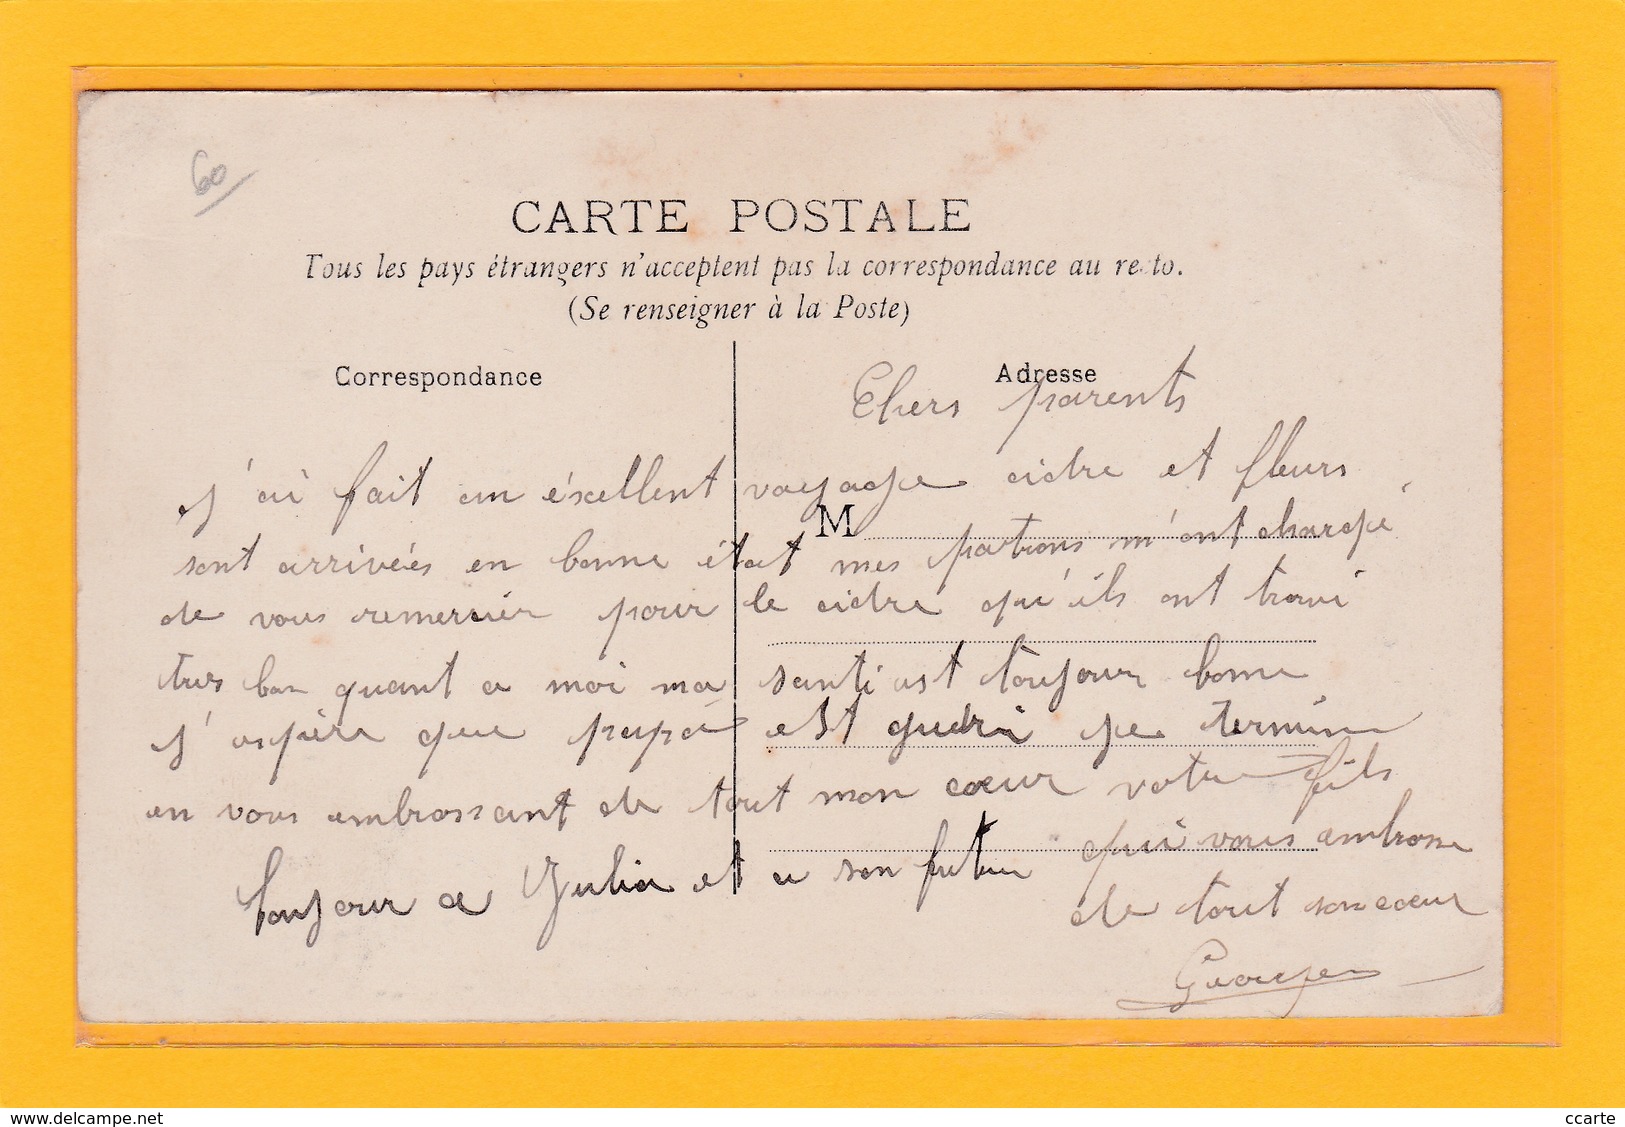 60
CARTE POSTALE
Tous les pays étrangers n'acceptent pas la correspondance au recto.
(Se renseigner à la Poste)
Correspondance
Adresse
Chers parents
j'ai fait un éxcellent voyage cidre et fleurs
M
sont arrivées en bonne état mes patrons m'ont chargé
de vous remercier pour le cidre qu'ils ont trouvé
tres bon quant a moi ma santé est toujour bonne
j'espère que papa est guéri je termine
en vous embrassant de tout mon cœur votre fils
bonjour a Julia et a son futur qui vous embrasse
de tout son cœur
Georges
delcampe.net
ccarte